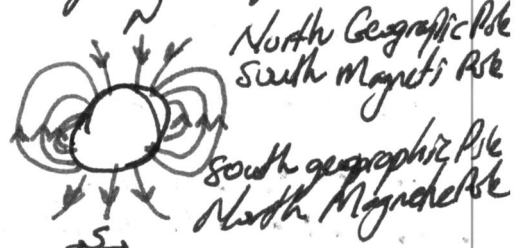 N
North Geographic Pole
South Magneti Pole
South geographic Pole
North Magnetic Pole
S